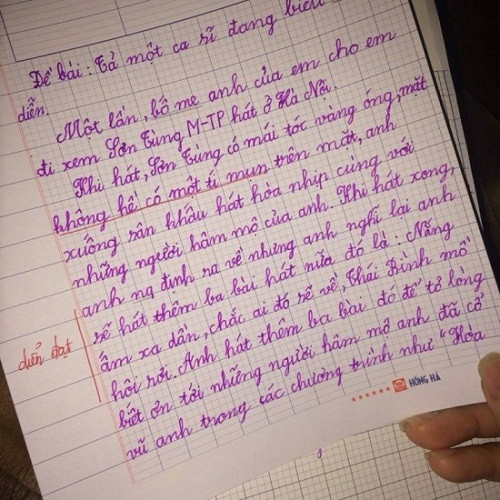 Đề bài: Tả một ca sĩ đang biểu
diễn.
Một lần, bố mẹ anh của em cho em
đi xem Sơn Tùng M-TP hát ở Hà Nội.
Khi hát, Sơn Tùng có mái tóc vàng óng, mặt
không hề có một tí mụn trên mặt, anh
xuống sân khấu hát hòa nhịp cùng với
những người hâm mộ của anh. Khi hát xong,
anh ng định ra về nhưng anh nghĩ lại anh
sẽ hát thêm ba bài hát nữa đó là: Nắng
ấm xa dần, chắc ai đó sẽ về, Thái Bình mồ
hôi rơi. Anh hát thêm ba bài đó để tỏ lòng
biết ơn tới những người hâm mộ anh đã cổ
vũ anh trong các chương trình như "Hòa
diễn đạt
HỒNG HÀ